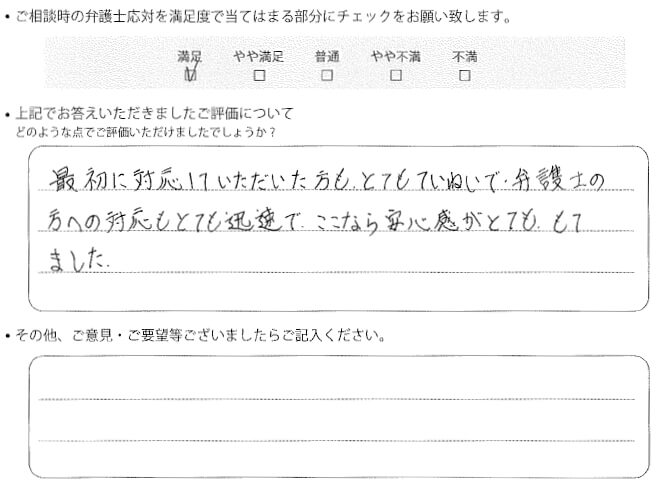 • ご相談時の弁護士応対を満足度で当てはまる部分にチェックをお願い致します。
満足 やや満足 普通 やや不満 不満
☑ □ □ □ □
• 上記でお答えいただきましたご評価について
どのような点でご評価いただけましたでしょうか？
最初に対応していただいた方も、とてもていねいで、弁護士の
方への対応もとても迅速で、ここなら安心感がとても、もて
ました。
• その他、ご意見・ご要望等ございましたらご記入ください。